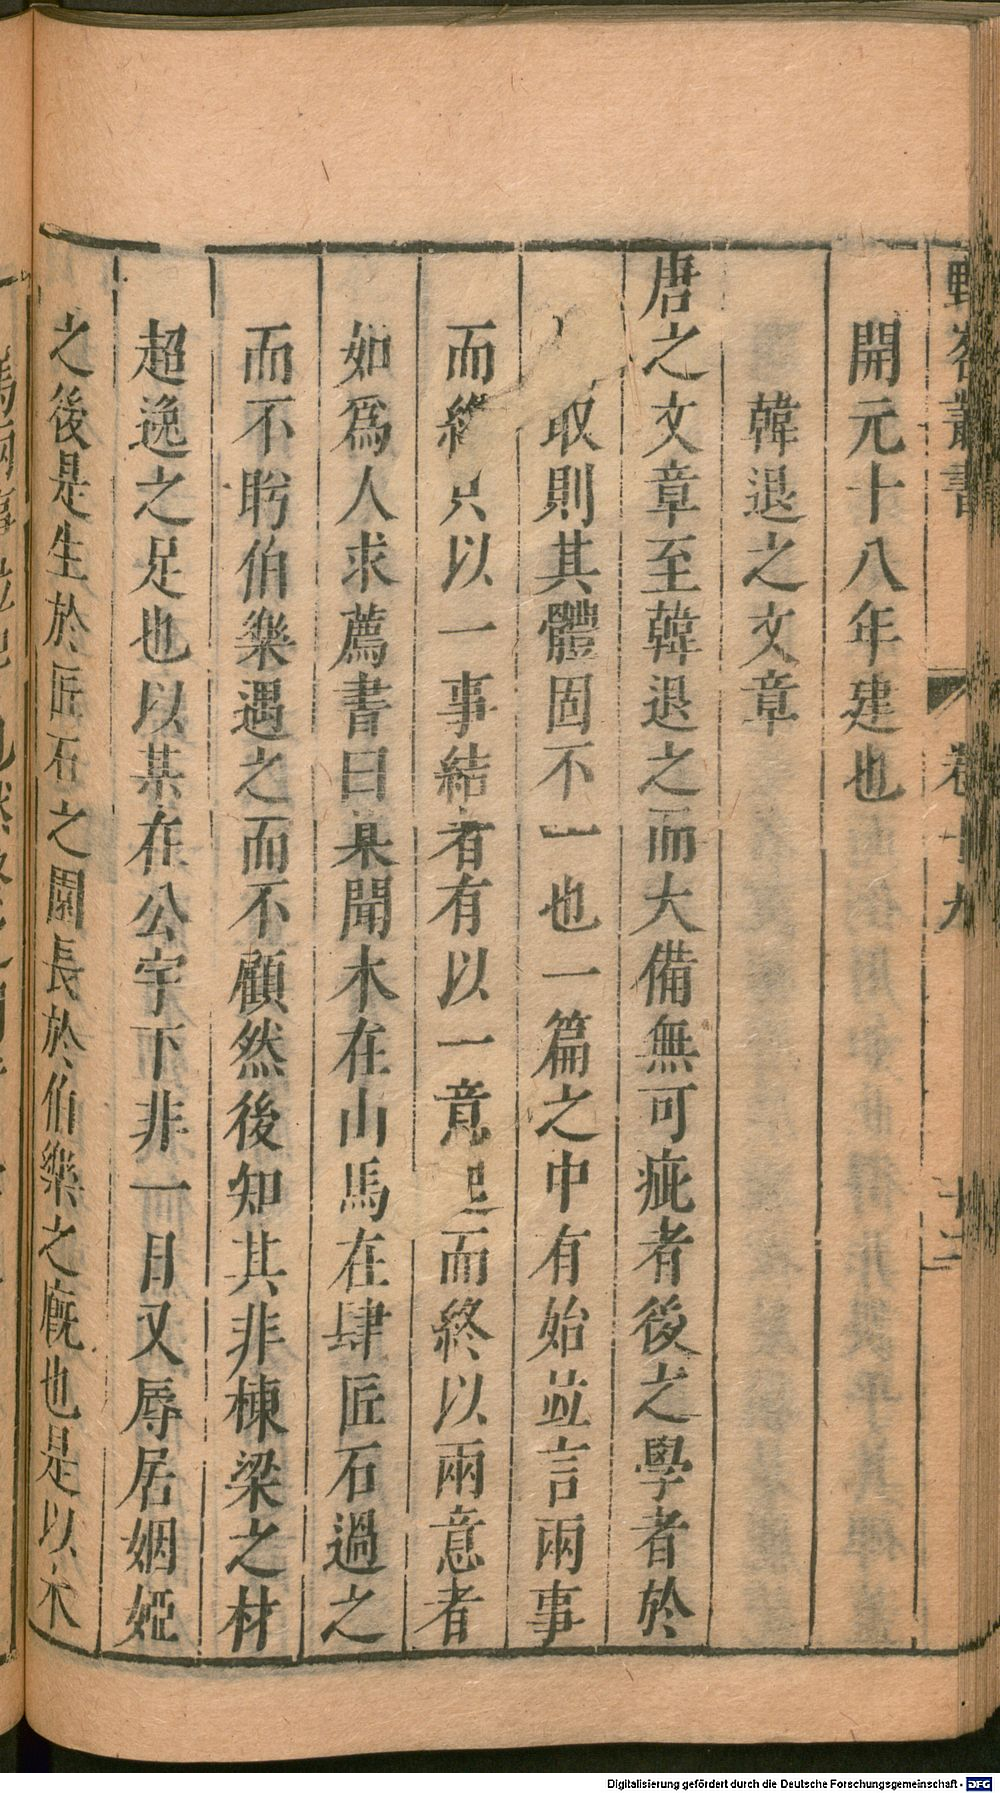 野客叢書 卷十九 十二
開元十八年建也
韓退之文章
唐之文章至韓退之而大備無可疵者後之學者於
取則其體固不一也一篇之中有始並言兩事
而終只以一事結者有以一意起而終以兩意者
如爲人求薦書曰某聞木在山馬在肆匠石過之
而不眄伯樂遇之而不顧然後知其非棟梁之材
超逸之足也以某在公宇下非一日又辱居姻婭
之後是生於匠石之園長於伯樂之廐也是以木
Digitalisierung gefördert durch die Deutsche Forschungsgemeinschaft - DFG